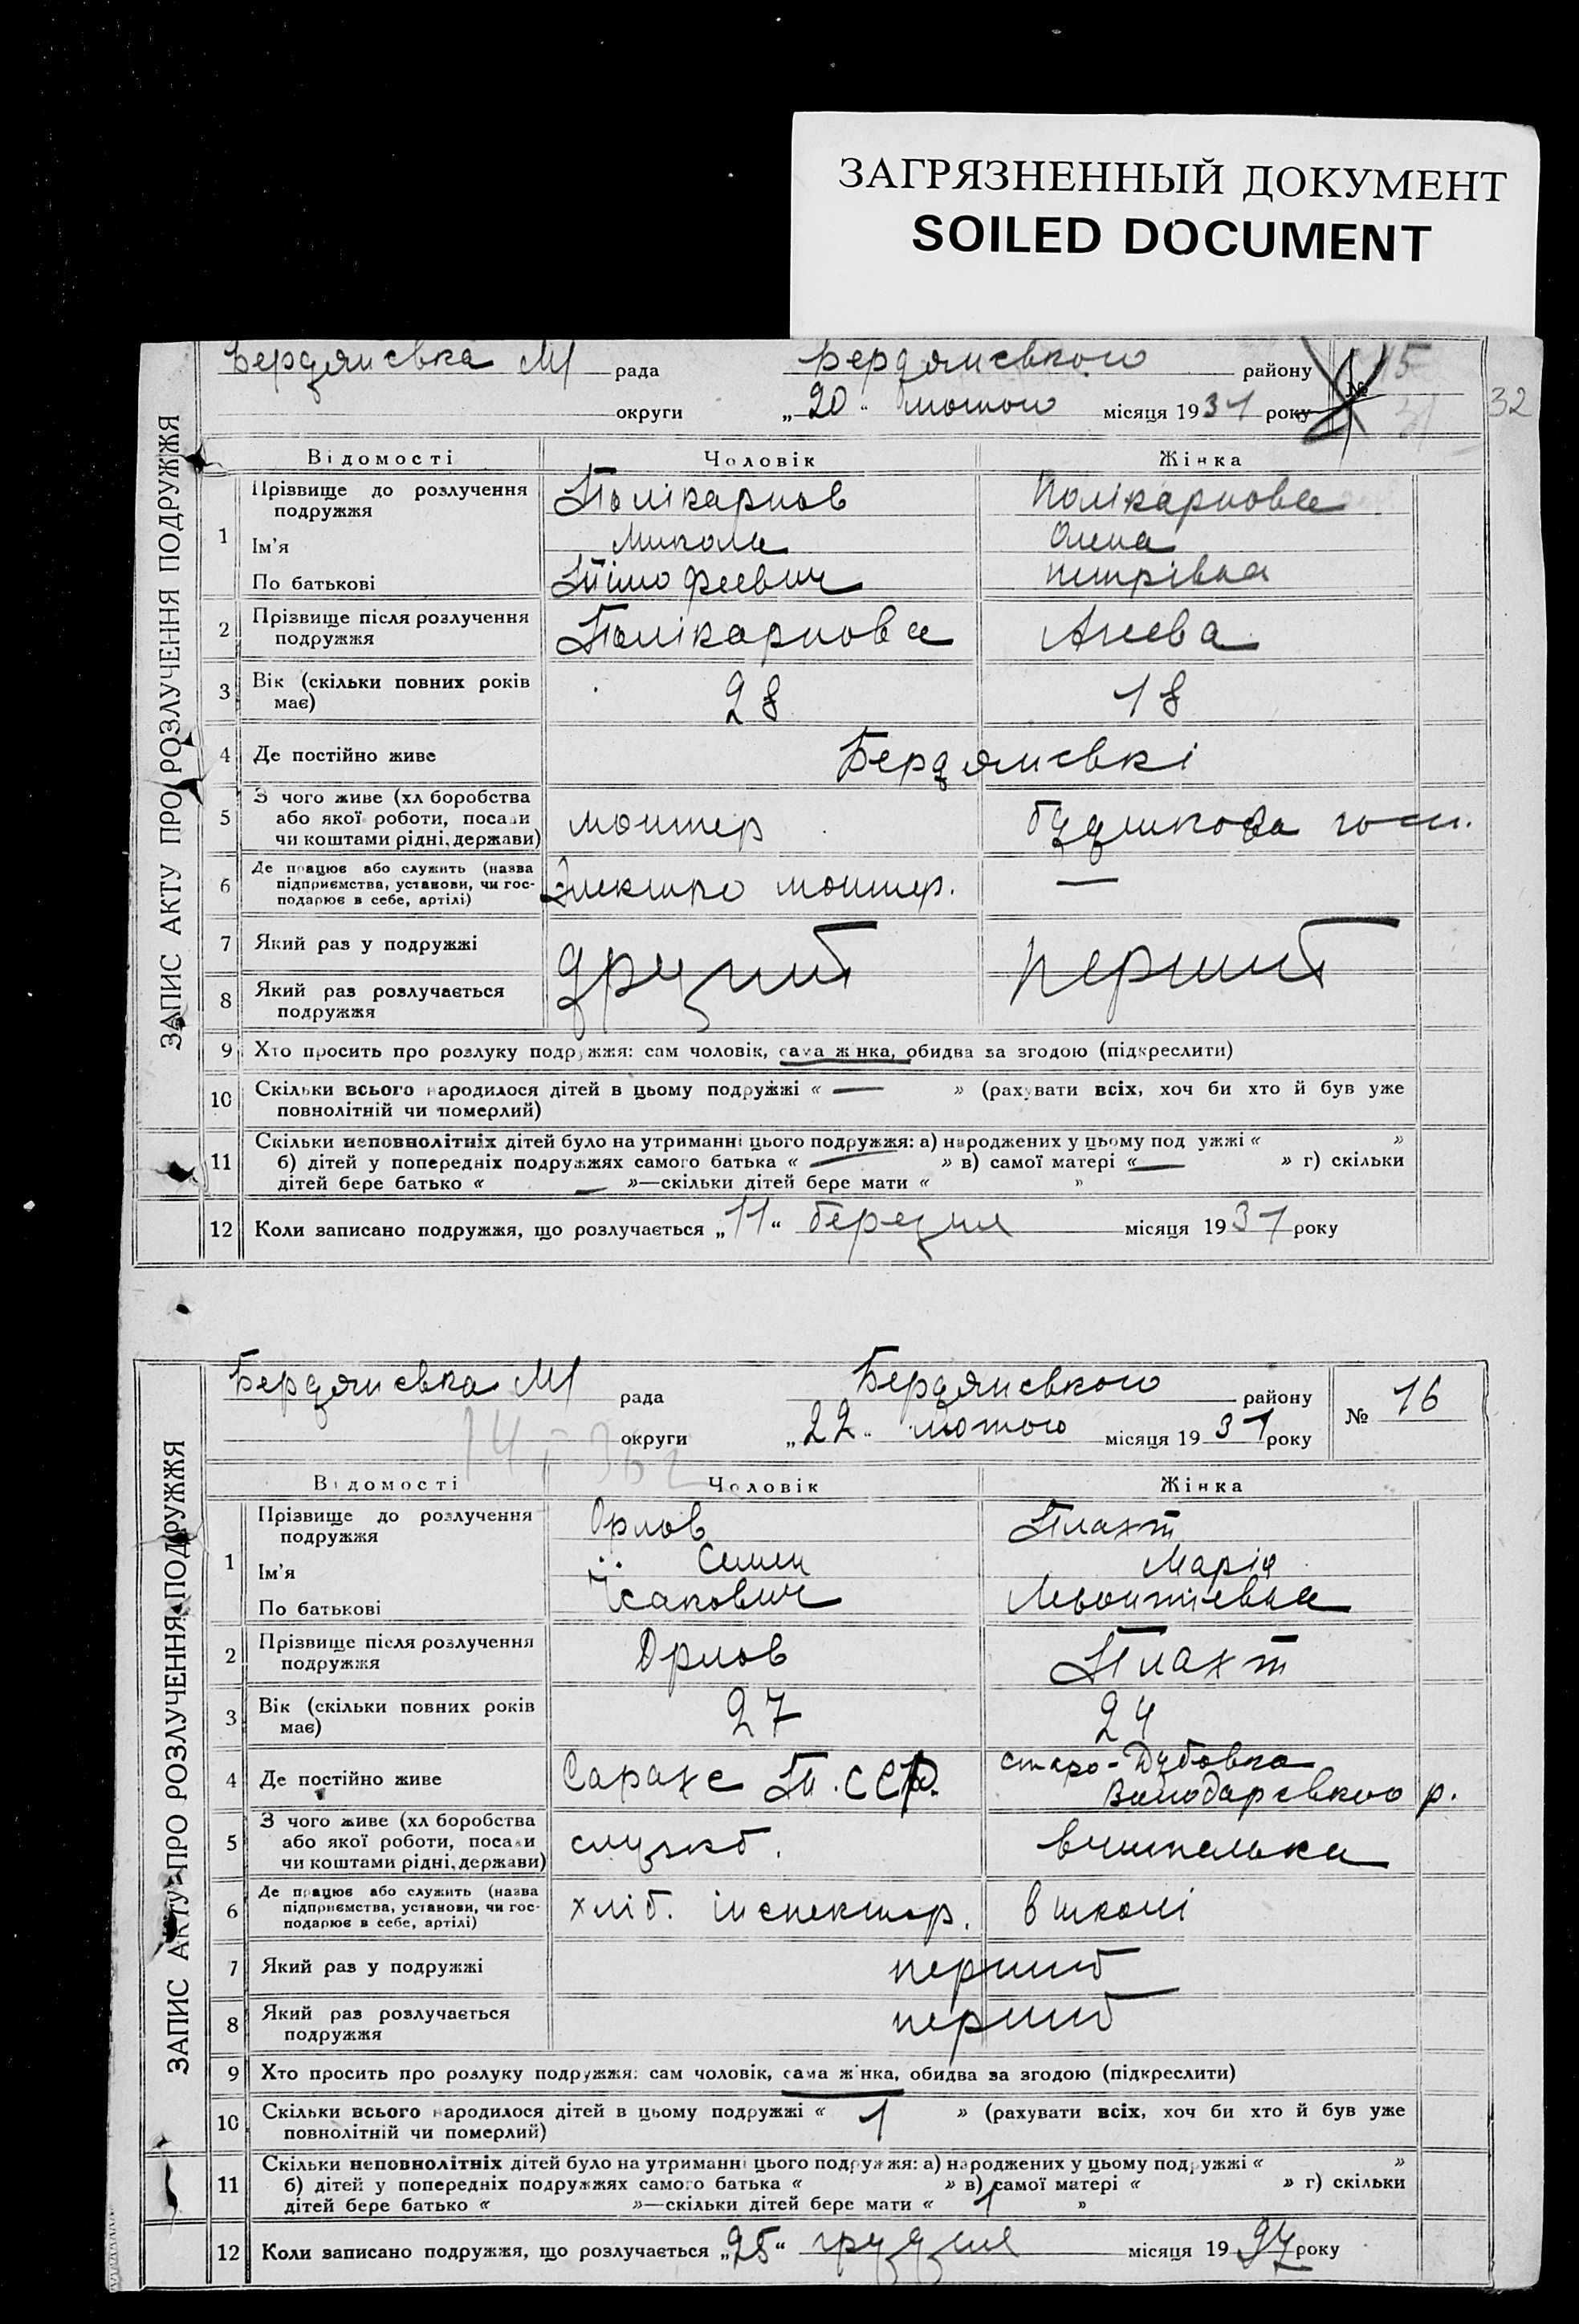 ЗАГРЯЗНЕННЫЙ ДОКУМЕНТ
SOILED DOCUMENT
ЗАПИС АКТУ ПРО РОЗЛУЧЕННЯ ПОДРУЖЖЯ
Бердянська М/ рада Бердянського району № 15
округи „20“ лютого місяця 1931 року 31 32
Відомості Чоловік Жінка
1 Прізвище до розлучення подружжя Полікарпов Полікарпова
Ім'я Микола Олена
По батькові Тімофеевич петрівна
2 Прізвище після розлучення
подружжя Полікарпова
3 Вік (скільки повних років
має) 28 18
4 Де постійно живе Бердянські
5 З чого живе (хліборобства
або якої роботи, посади
чи коштами рідні, держави) монтер
6 Де працює або служить (назва
підприємства, установи, чи гос-
подарює в себе, артілі) Электро монтер. —
7 Який раз у подружжі другий перший
8 Який раз розлучається
подружжя
9 Хто просить про розлуку подружжя: сам чоловік, сама жінка, обидва за згодою (підкреслити)
10 Скільки всього народилося дітей в цьому подружжі « — » (рахувати всіх, хоч би хто й був уже
повнолітній чи померлий)
11 Скільки неповнолітніх дітей було на утриманні цього подружжя: а) народжених у цьому подружжі « »
б) дітей у попередніх подружжях самого батька « — » в) самої матері « — » г) скільки
дітей бере батько « — »—скільки дітей бере мати « »
12 Коли записано подружжя, що розлучається „11“ березня місяця 1931 року
ЗАПИС АКТУ ПРО РОЗЛУЧЕННЯ ПОДРУЖЖЯ
Бердянська М/ рада Бердянського району № 16
округи „22“ лютого місяця 1931 року
Відомості Чоловік Жінка
1 Прізвище до розлучення
подружжя Орлов Плахт
Ім'я Семен Марія
По батькові Ісакович Леонтіевна
2 Прізвище після розлучення
подружжя Орлов Плахт
3 Вік (скільки повних років
має) 27 24
4 Де постійно живе Сарахс Т.ССР. старо-Дубовка
Володарсвкого р.
5 З чого живе (хліборобства
або якої роботи, посади
чи коштами рідні, держави) служб. вчителька
6 Де працює або служить (назва
підприємства, установи, чи гос-
подарює в себе, артілі) хліб. інспектор. в школі
7 Який раз у подружжі перший
8 Який раз розлучається
подружжя перший
9 Хто просить про розлуку подружжя: сам чоловік, сама жінка, обидва за згодою (підкреслити)
10 Скільки всього народилося дітей в цьому подружжі « 1 » (рахувати всіх, хоч би хто й був уже
повнолітній чи померлий)
11 Скільки неповнолітніх дітей було на утриманні цього подружжя: а) народжених у цьому подружжі « »
б) дітей у попередніх подружжях самого батька « » в) самої матері « » г) скільки
дітей бере батько « »—скільки дітей бере мати « 1 »
12 Коли записано подружжя, що розлучається „25“ грудня місяця 1927 року